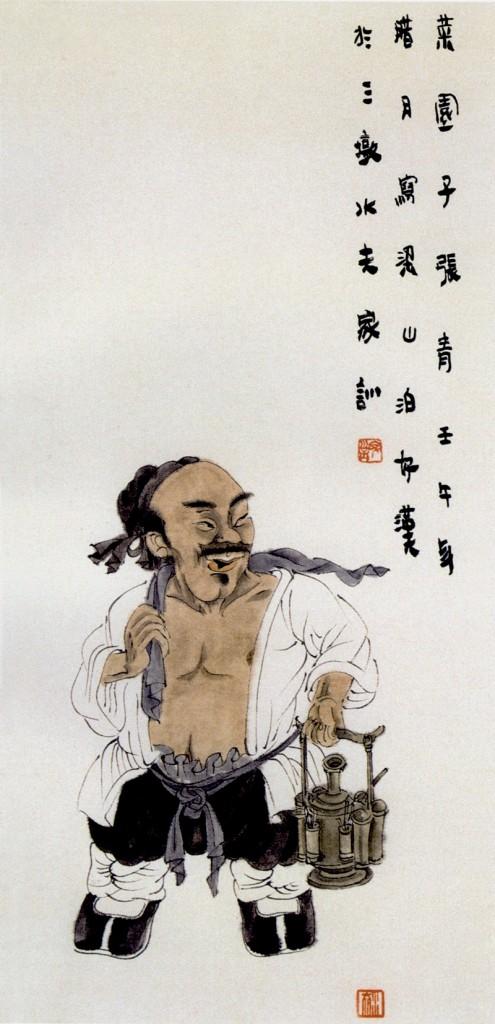 菜園子張青壬午年
腊月寫梁山泊好漢
於三墩水夫家訓